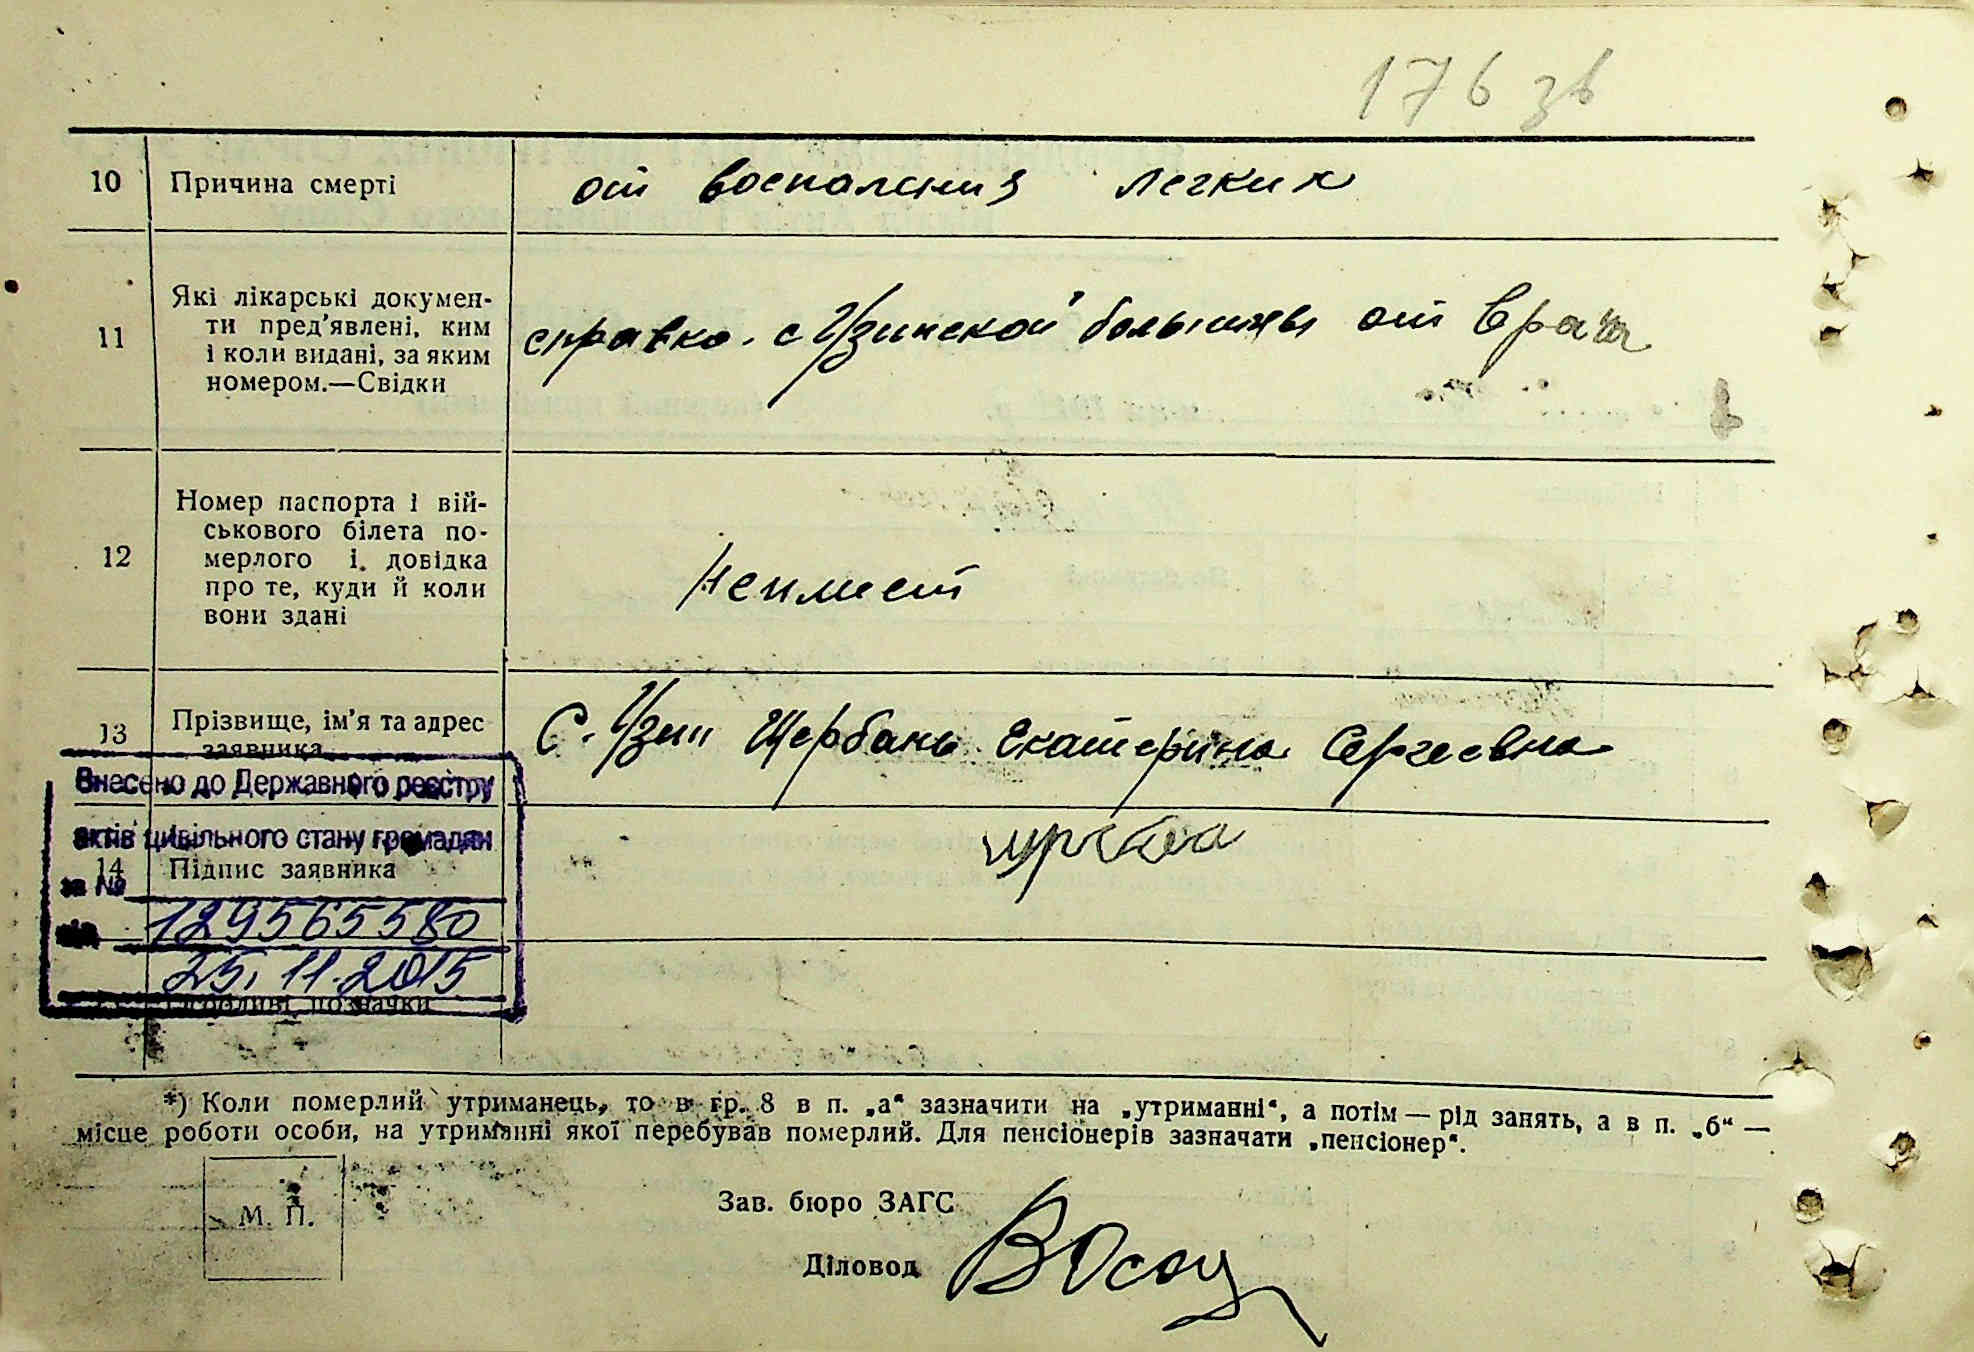 176 зв
10 Причина смерті от воспаления легких
11 Які лікарські докумен-
ти пред'явлені, ким
і коли видані, за яким
номером.—Свідки
справка. с Узинской больницы от врача
12 Номер паспорта і вій-
ськового білета по-
мерлого і. довідка
про те, куди й коли
вони здані
Неимеет
13 Прізвище, ім'я та адрес
заявника
С. Узин Щербань Екатерина Сергеевна
Внесено до Державного реєстру
актів цивільного стану громадян
14 Підпис заявника
за №
129565580
від
25.11.2015
Особливі позначки
*) Коли померлий утриманець, то в гр. 8 в п. „а“ зазначити на „утриманні“, а потім — рід занять, а в п. „б“ —
місце роботи особи, на утриманні якої перебував померлий. Для пенсіонерів зазначати „пенсіонер“.
М. П.
Зав. бюро ЗАГС
Діловод